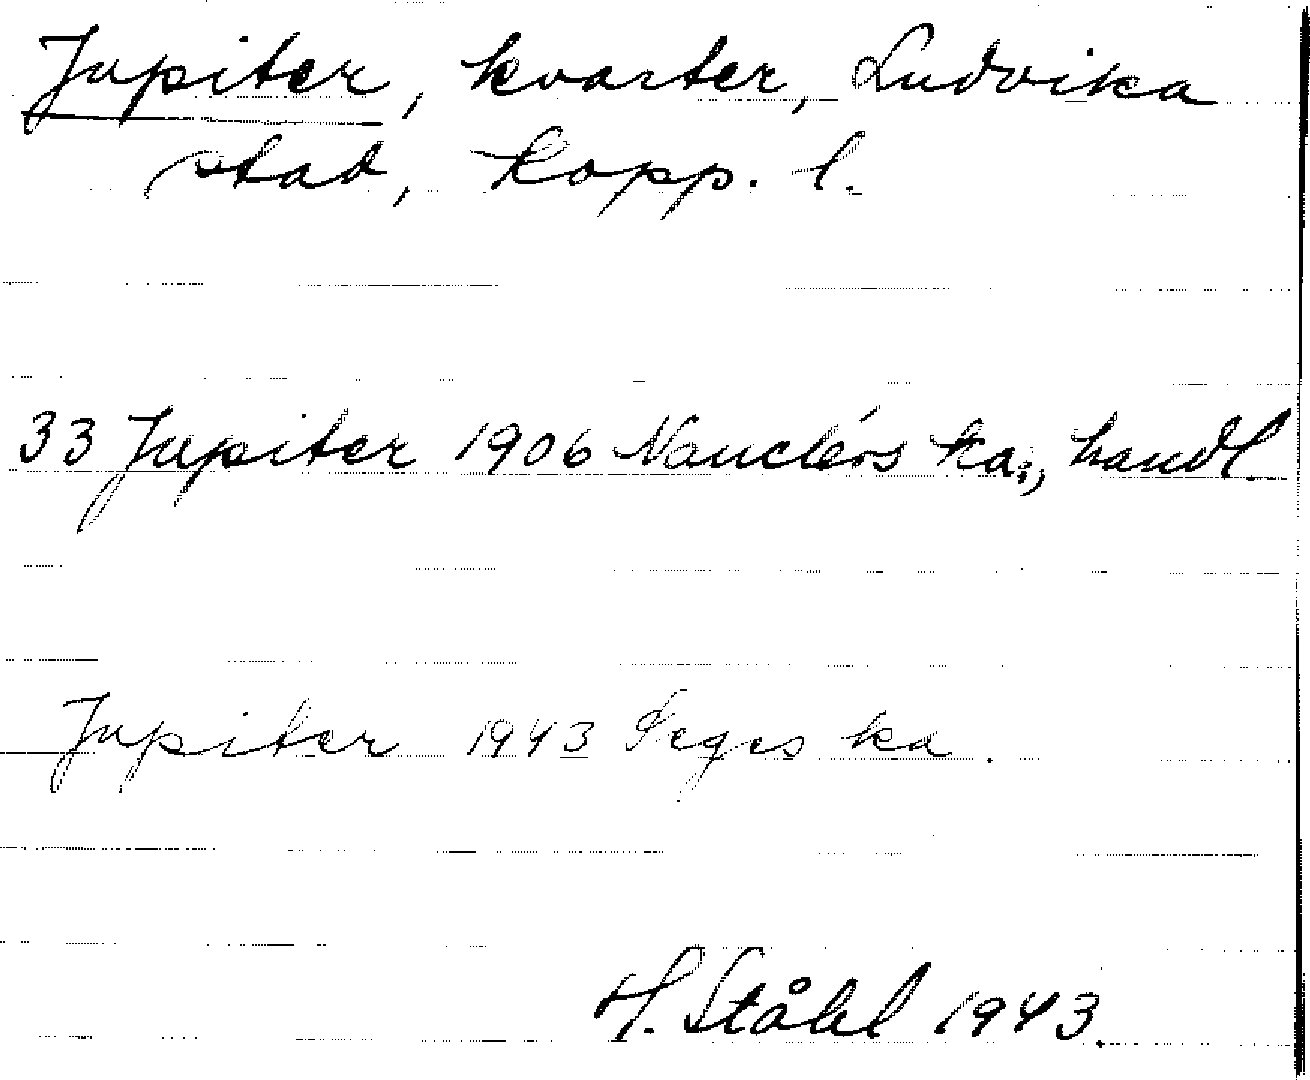 Jupiter, kvarter, Ludvika
stad, Kopp. l.
33 Jupiter 1906 Nauclérs ka:, handl
Jupiter 1943 Seges ka.
H. Ståhl 1943.